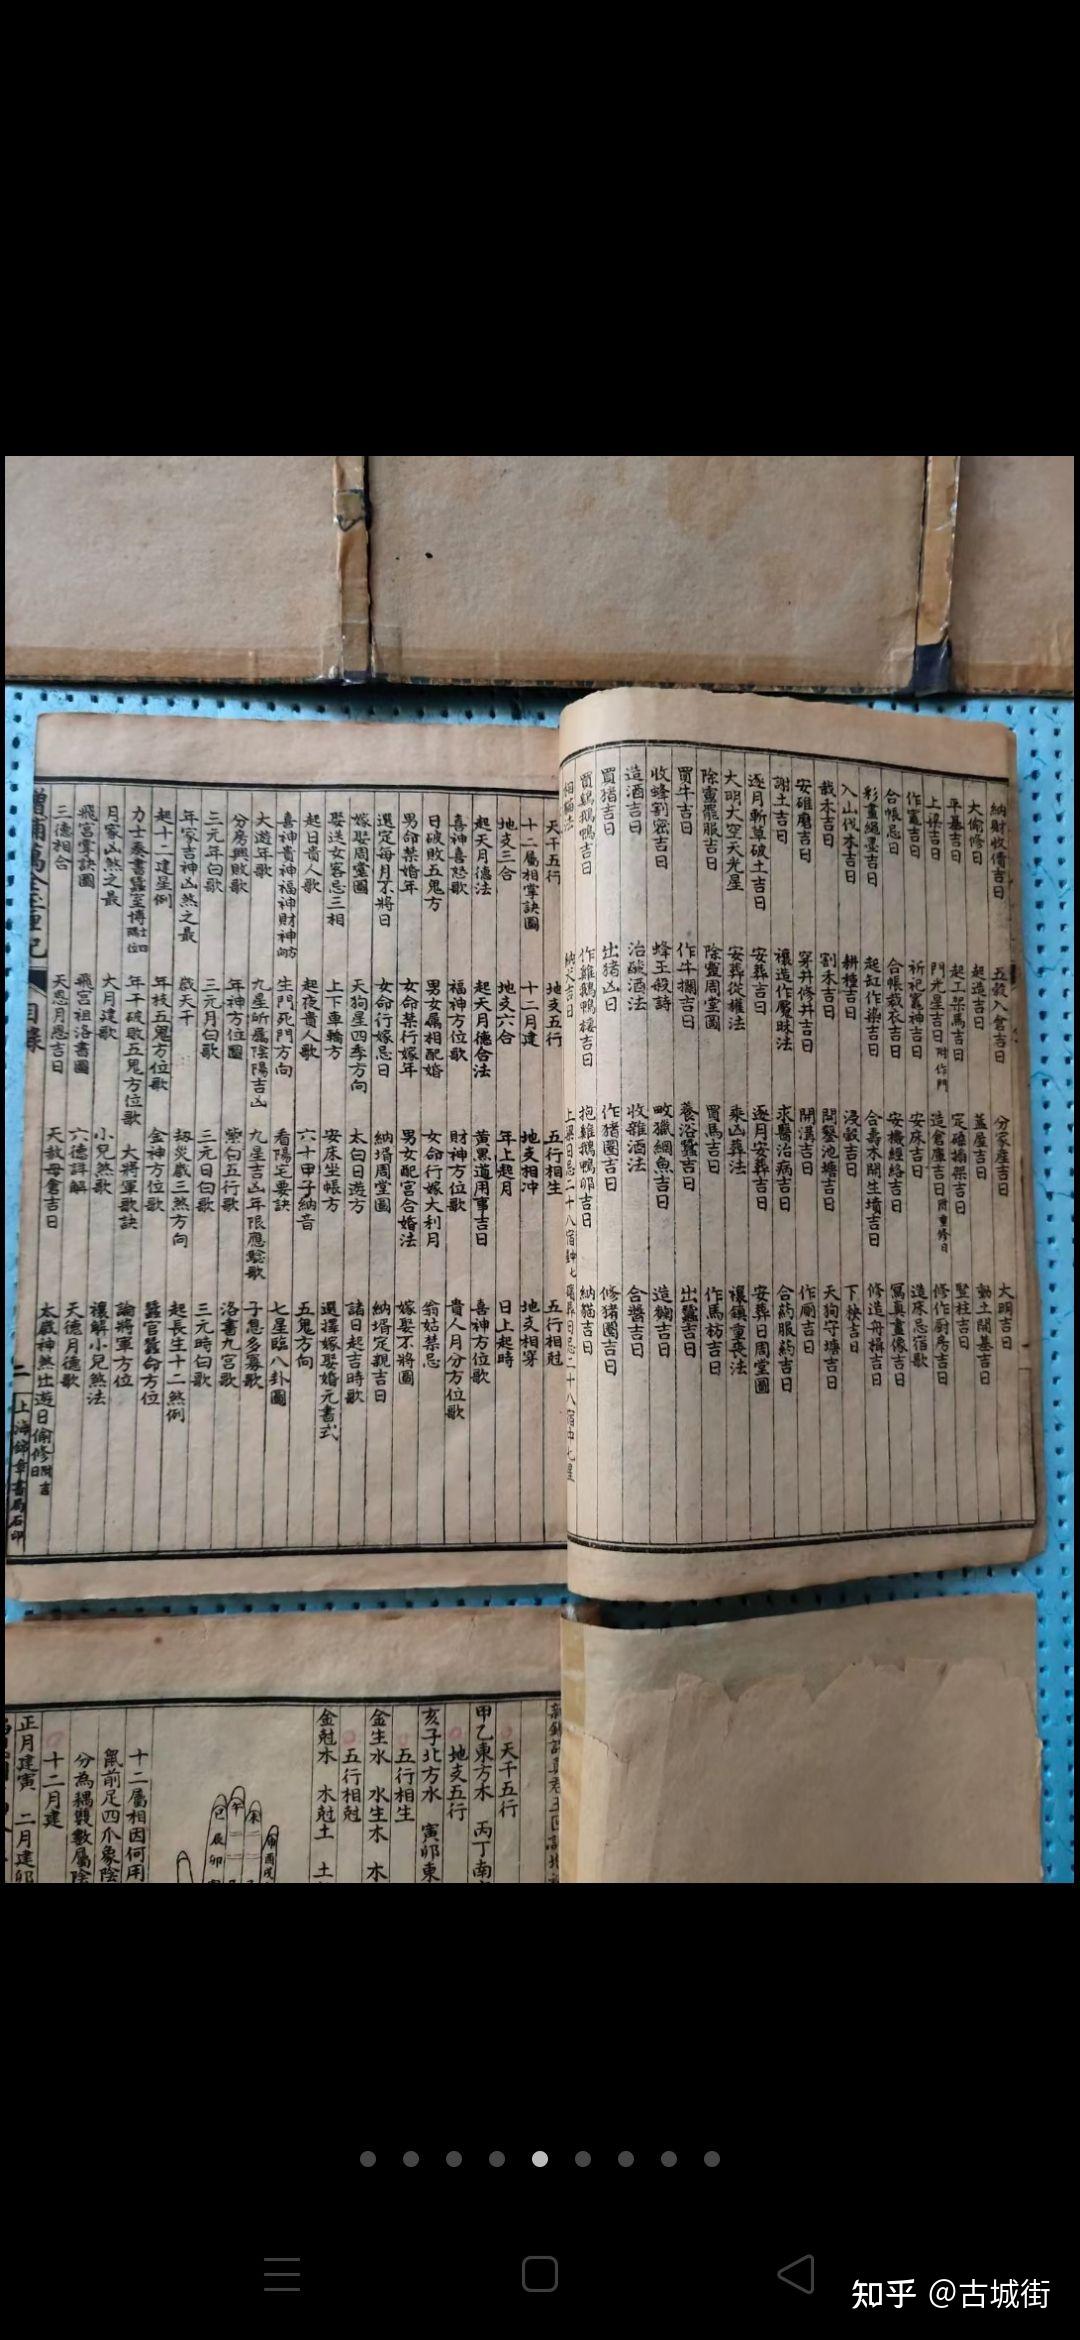 納財收債吉日　五穀入倉吉日　分家產吉日　大明吉日
大偷修日　起造吉日　蓋屋吉日　動土開基吉日
平基吉日　起工架馬吉日　定磉搧架吉日　豎柱吉日
上梁吉日　門光星吉日附作門　造倉庫吉日附重修日　修作厨房吉日
作竈吉日　祈祀竈神吉日　安床吉日　造床忌宿歌
合帳忌日　合帳裁衣吉日　安機經絡吉日　冩真畫像吉日
彩畫繩墨吉日　起缸作染吉日　合壽木開生墳吉日　修造舟楫吉日
入山伐木吉日　耕種吉日　浸穀吉日　下秧吉日
栽禾吉日　割禾吉日　開鑿池塘吉日　天狗守塘吉日
安碓磨吉日　穿井修井吉日　開溝吉日　作厠吉日
謝土吉日　禳造作魘昧法　求醫治病吉日　合葯服葯吉日
逐月斬草破土吉日　安葬吉日　逐月安葬吉日　安葬日周堂圖
大明大空天光星　安葬從權法　乘凶葬法　禳鎮重喪法
除靈罷服吉日　除靈周堂圖　買馬吉日　作馬枋吉日
買牛吉日　作牛攔吉日　養浴蠶吉日　出蠶吉日
收蜂割密吉日　蜂王殺詩　畋獵綱魚吉日　造麯吉日
造酒吉日　治酸酒法　收雜酒法　合醬吉日
買猪吉日　出猪凶日　作猪圈吉日　修猪圈吉日
買鷄鵝鴨吉日　作雞鵝鴨棲吉日　抱雞鵝鴨卵吉日　納猫吉日
相猫法　納犬吉日
天干五行　地支五行　五行相生　五行相尅
十二屬相掌訣圖　十二月建　地支相冲　地支相穿
地支三合　地支六合　年上起月　日上起時
起天月德法　起天月德合法　黃黑道用事吉日　喜神方位歌
喜神喜怒歌　福神方位歌　財神方位歌　貴人月分方位歌
日破敗五鬼方　男女屬相配婚　女命行嫁大利月　翁姑禁忌
男命禁婚年　女命禁行嫁年　男女配宮合婚法　嫁娶不將圖
選定每月不將日　女命行嫁忌日　納壻周堂圖　納壻定親吉日
嫁娶周堂圖　天狗星四季方向　太白日遊方　諸日起吉時歌
娶送女客忌三相　上下車輪方　安床坐帳方　選擇嫁娶婚元書式
起日貴人歌　起夜貴人歌　六十甲子納音　五鬼方向
喜神貴神福神財神方向　生門死門方向　看陽宅要訣　七星臨八卦圖
大遊年歌　九星所屬陰陽吉凶　九星吉凶年限應驗歌　子息多寡歌
分房興敗歌　年神方位圖　紫白五行歌　洛書九宮歌
三元年白歌　三元月白歌　三元日白歌　三元時白歌
年家吉神凶煞之最　歲天干　刼災歲三煞方向　起長生十二煞例
起十二建星例　年枝五鬼方位歌　金神方位歌　蠶官蠶命方位
力士奏書蠶室博士四隅位　年干破敗五鬼方位歌　大將軍歌訣　論將軍方位
月家凶煞之最　大月建歌　小兒煞歌　禳解小兒煞法
飛宮掌訣圖　飛宮祖洛書圖　六德詳解　天德月德歌
三德相合　天恩月恩吉日　天赦母倉吉日　太歲神煞出遊日偷修日附吉
增補萬全玉匣記　目錄　二　上海錦章書局石印
天干五行
甲乙東方木　丙丁南
地支五行
亥子北方水　寅卯東
五行相生
金生水　水生木　木
五行相尅
金尅木　木尅土　土
午
巳
未
辰
卯
酉
戌
十二屬相因何用
鼠前足四爪象陰
分為耦雙數屬陰
十二月建
正月建寅　二月建卯
知乎 @古城街